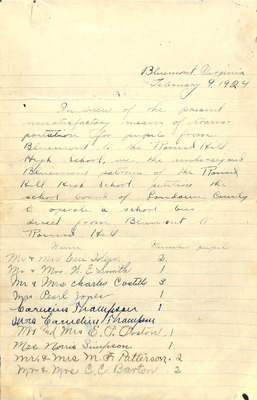 Bluemont, Virginia
February 9, 1924
In view of the present
unsatisfactory means of trans-
portation for pupils from
Bluemont to the Round Hill
High School, we, the undersigned
Bluemont patrons of the Round
Hill High School petition the
school board of Loudoun County
to operate a school bus
direct from Bluemont to
Round Hill
Name Number pupil
Mr & Mrs 2
Mr. & Mrs. W. E. Smith 1
Mr & Mrs Charles Costello 3
Mrs Pearl 1
Cornelius Thompson 1
Mrs Cornelius Thompson
Mr and Mrs E. P. 1
Mrs. Norris Simpson 1
Mr. & Mrs M. F. Patterson. 2
Mr & Mrs C. C. Barton 2